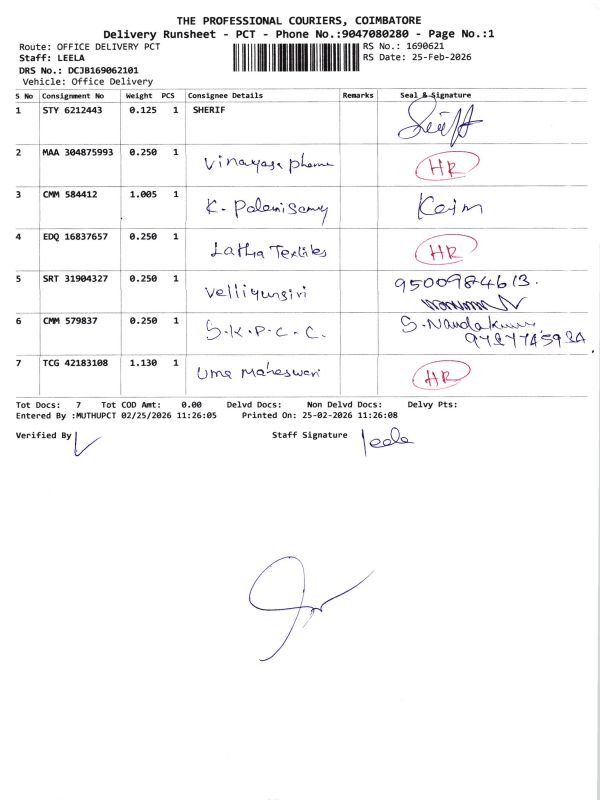 THE PROFESSIONAL COURIERS, COIMBATORE
Delivery Runsheet - PCT - Phone No.:9047080280 - Page No.:1
Route: OFFICE DELIVERY PCT RS No.: 1690621
Staff: LEELA RS Date: 25-Feb-2026
DRS No.: DCJB169062101
Vehicle: Office Delivery
S No Consignment No Weight PCS Consignee Details Remarks Seal & Signature
1 STY 6212443 0.125 1 SHERIF
2 MAA 304875993 0.250 1 Vinayaga Pharma HR
3 CMM 584412 1.005 1 K. Palanisamy
4 EDQ 16837657 0.250 1 Latha Textiles HR
5 SRT 31904327 0.250 1 Velliyangiri 9500984613.
6 CMM 579837 0.250 1 S.K.P.C.C. S. Nandakumar
7 TCG 42183108 1.130 1 Uma Maheswari HR
Tot Docs: 7 Tot COD Amt: 0.00 Delvd Docs: Non Delvd Docs: Delvy Pts:
Entered By :MUTHUPCT 02/25/2026 11:26:05 Printed On: 25-02-2026 11:26:08
Verified By Staff Signature leela